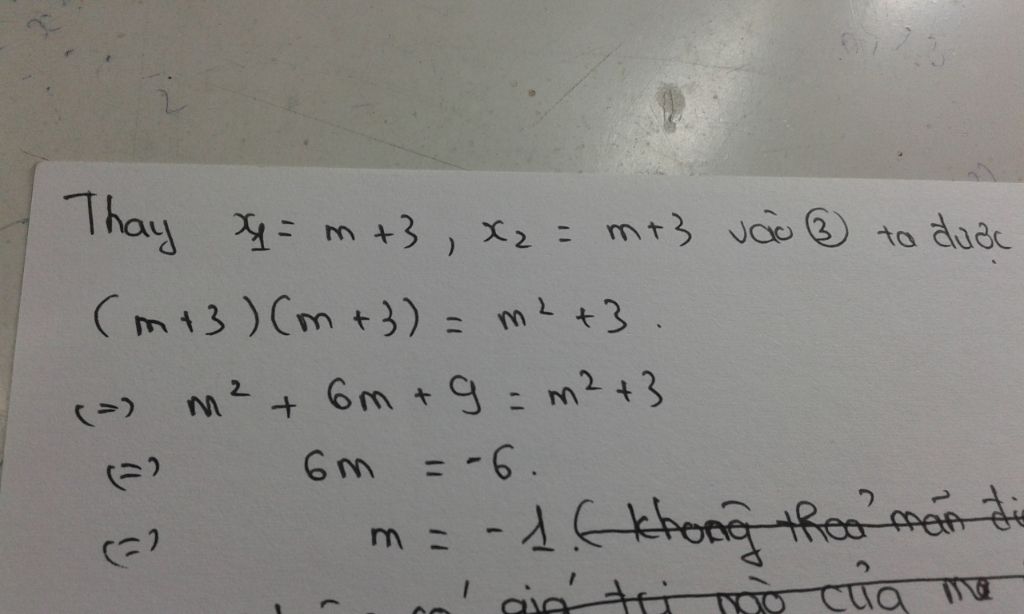 Thay x₁ = m + 3, x₂ = m+3 vào ③ ta được
(m+3)(m+3) = m² + 3.
(=) m² + 6m + 9 = m² + 3
(=) 6m = -6.
(=) m = -1. (không thoả mãn
giá trị nào của m